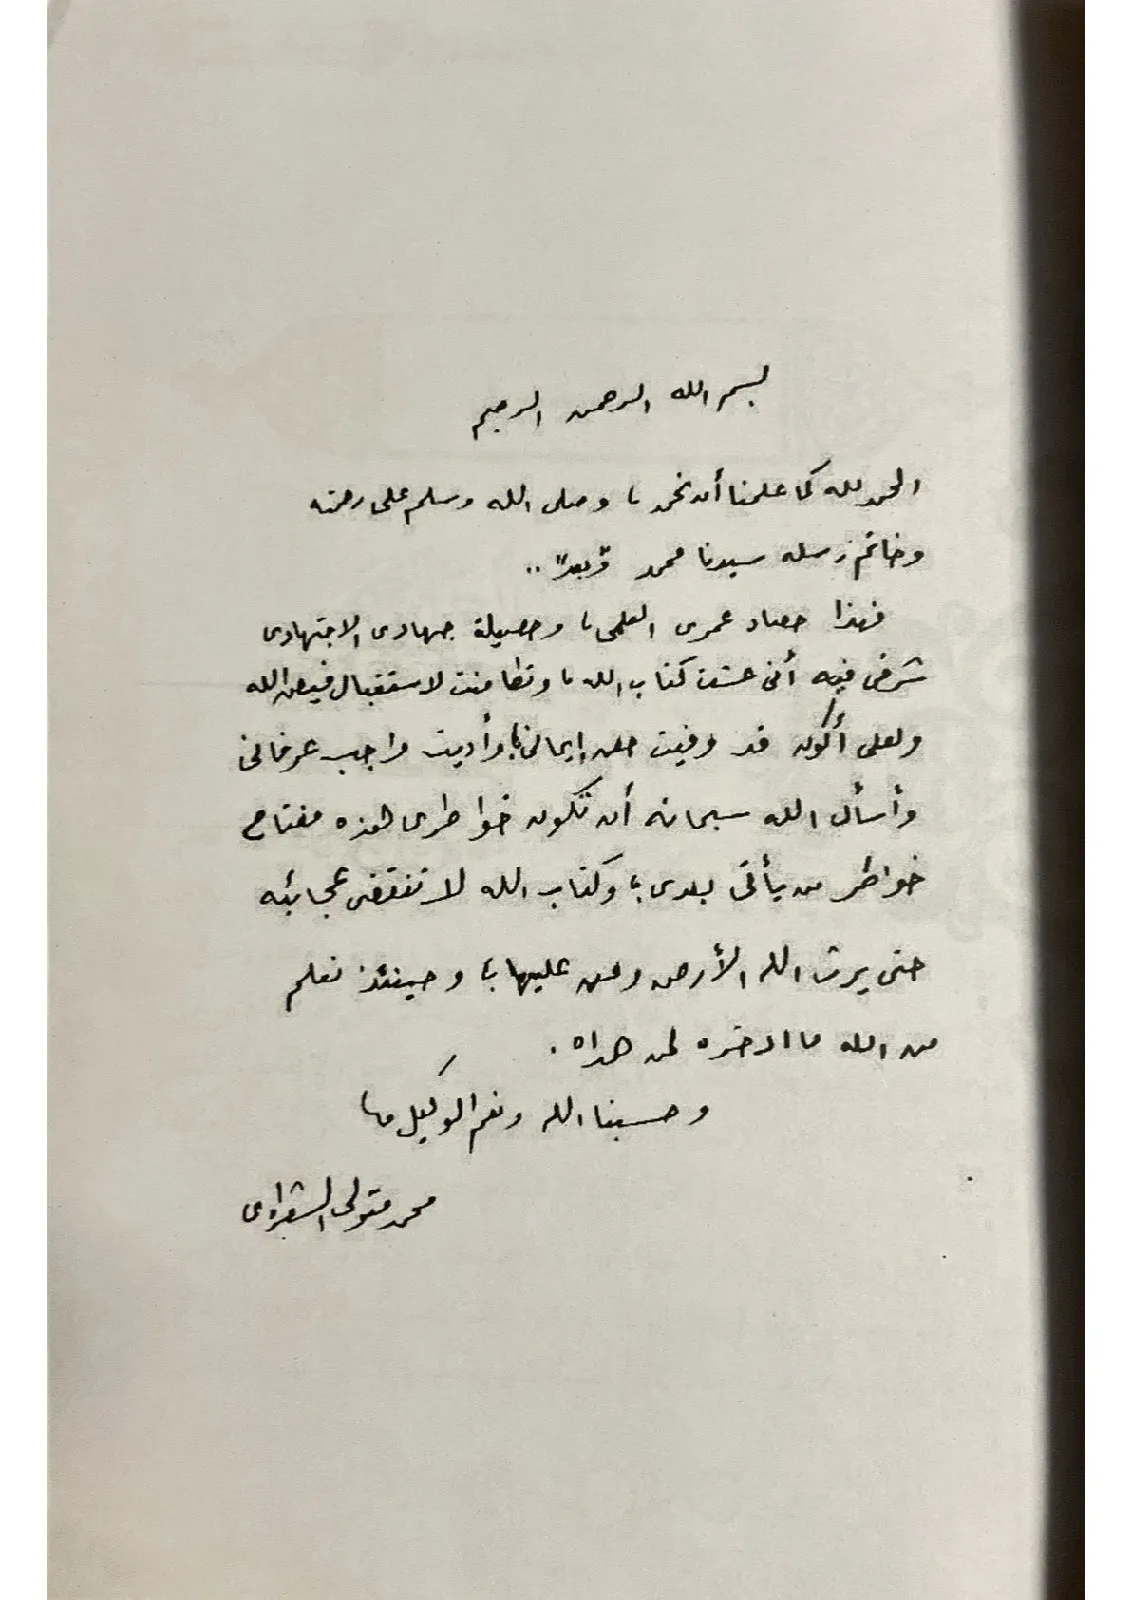 بسم الله الرحمن الرحيم
الحمد لله كما علمنا أن نحمد ، وصلى الله وسلم على رحمته
وخاتم رسله سيدنا محمد وبعد ..
فهذا حصاد عمرى العلمى ، وحصيلة جهادى الاجتهادى
شرفى فيه أنى عشت كتاب الله ، وتطامنت لاستقبال فيض الله
ولعلى أكون قد وفيت حق إيمانى ، وأديت واجب عرفانى
وأسأل الله سبحانه أن تكون خواطرى هذه مفتاح
خواطر من يأتى بعدى ، وكتاب الله لا تنقضى عجائبه
حتى يرث الله الأرض ومن عليها ، وحينئذ نعلم
من الله ما ادخره لمن هداه .
وحسبنا الله ونعم الوكيل
محمد متولى الشعراوى